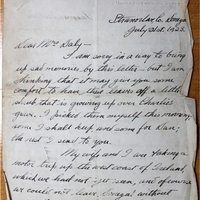 July 31st. 1925.
Dear Mrs Daly —
I am sorry in a way to bring
up sad memories, by this letter - but I am
thinking that it may give you some
comfort to have these leaves off a little
shrub that is growing up over Charlie's
grave. I picked them myself this morning,
some I shall keep and some for Nan;
the rest I send to you.
My wife and I are taking a
motor trip up the west coast of Ireland,
which we had not yet seen, and of course
we could not leave Sneem without